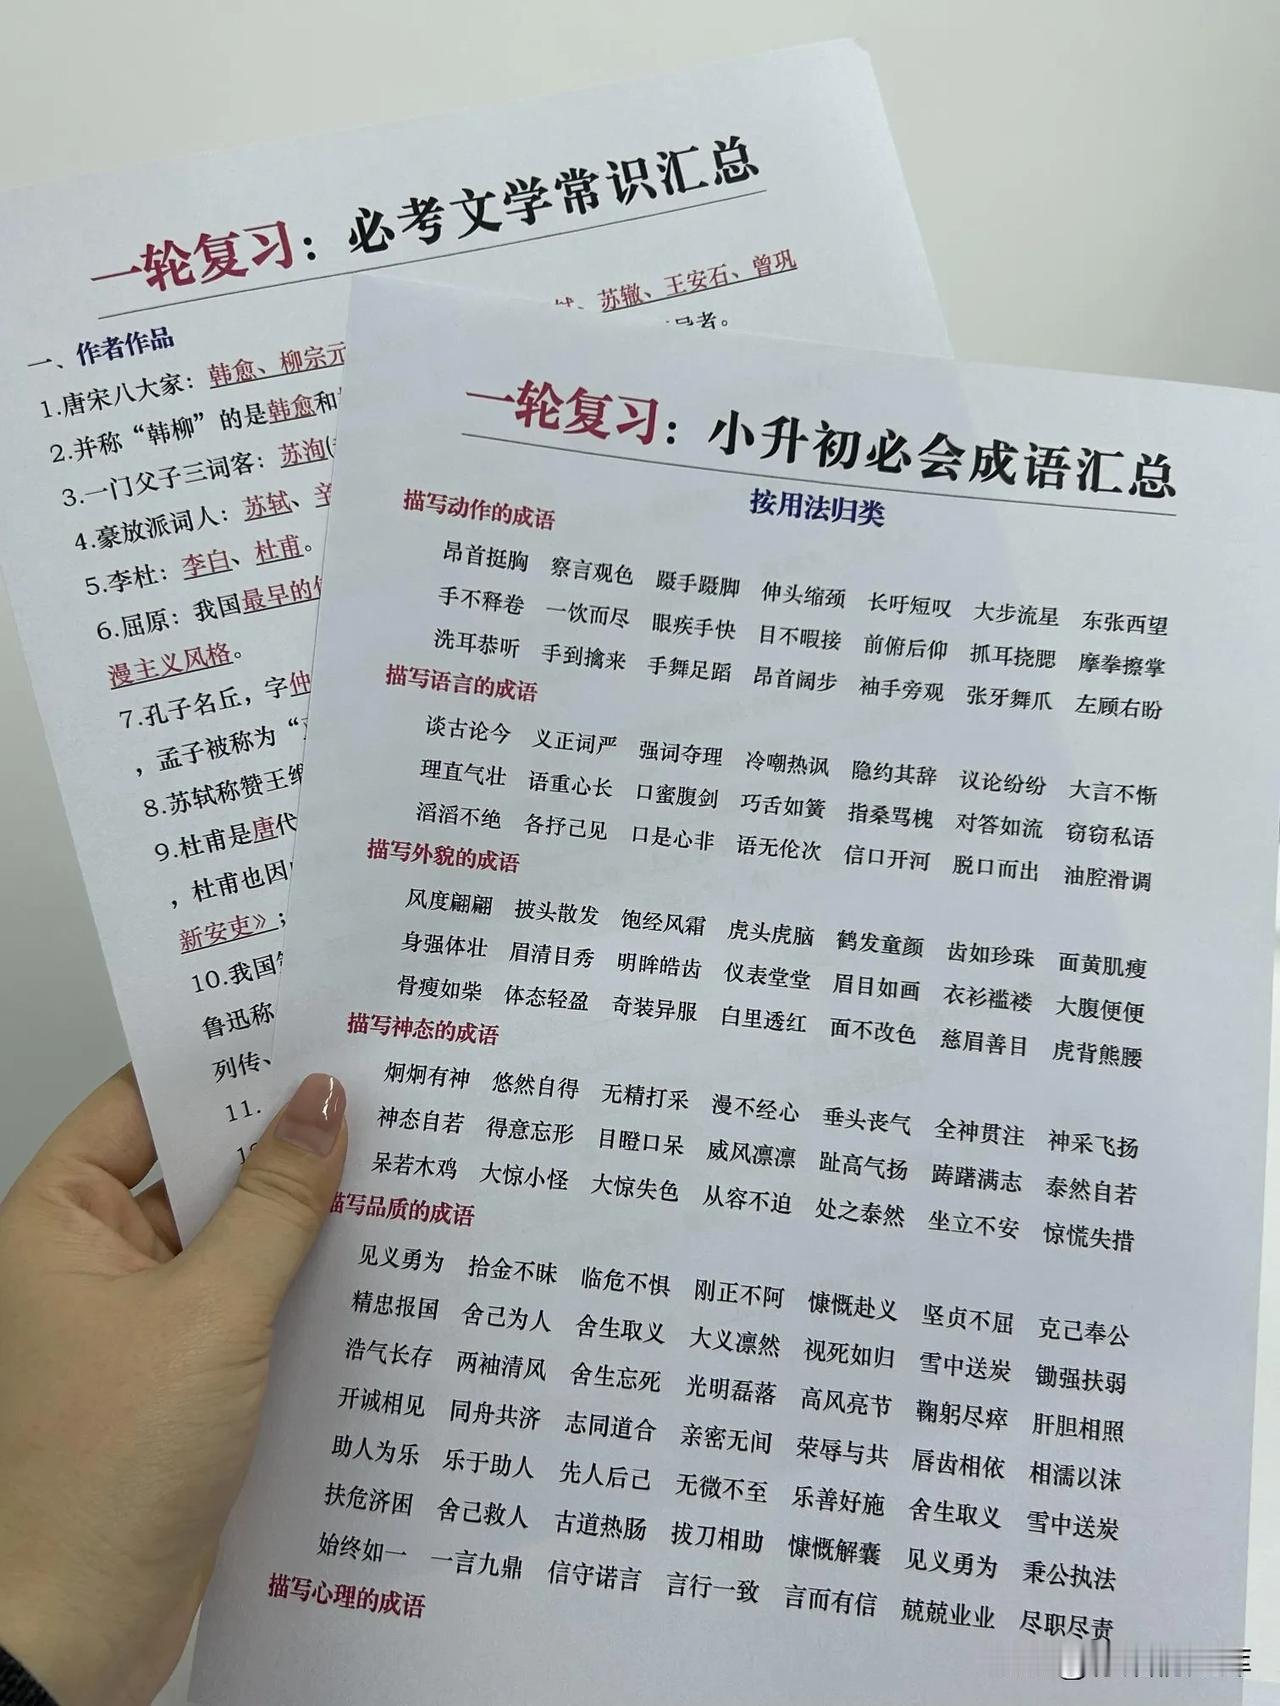 一轮复习：必考文学常识汇总
苏辙、王安石、曾巩
者。
一、作者作品
1.唐宋八大家：韩愈、柳宗元
2.并称“韩柳”的是韩愈和
3.一门父子三词客：苏洵(
4.豪放派词人：苏轼、辛
5.李杜：李白、杜甫。
6.屈原：我国最早的
漫主义风格。
7.孔子名丘，字仲
，孟子被称为“
8.苏轼称赞王维
9.杜甫是唐代
，杜甫也因
新安吏》；
10.我国
鲁迅称
列传、
11.
一轮复习：小升初必会成语汇总
按用法归类
描写动作的成语
昂首挺胸 察言观色 蹑手蹑脚 伸头缩颈 长吁短叹 大步流星 东张西望
手不释卷 一饮而尽 眼疾手快 目不暇接 前俯后仰 抓耳挠腮 摩拳擦掌
洗耳恭听 手到擒来 手舞足蹈 昂首阔步 袖手旁观 张牙舞爪 左顾右盼
描写语言的成语
谈古论今 义正词严 强词夺理 冷嘲热讽 隐约其辞 议论纷纷 大言不惭
理直气壮 语重心长 口蜜腹剑 巧舌如簧 指桑骂槐 对答如流 窃窃私语
滔滔不绝 各抒己见 口是心非 语无伦次 信口开河 脱口而出 油腔滑调
描写外貌的成语
风度翩翩 披头散发 饱经风霜 虎头虎脑 鹤发童颜 齿如珍珠 面黄肌瘦
身强体壮 眉清目秀 明眸皓齿 仪表堂堂 眉目如画 衣衫褴褛 大腹便便
骨瘦如柴 体态轻盈 奇装异服 白里透红 面不改色 慈眉善目 虎背熊腰
描写神态的成语
炯炯有神 悠然自得 无精打采 漫不经心 垂头丧气 全神贯注 神采飞扬
神态自若 得意忘形 目瞪口呆 威风凛凛 趾高气扬 踌躇满志 泰然自若
呆若木鸡 大惊小怪 大惊失色 从容不迫 处之泰然 坐立不安 惊慌失措
描写品质的成语
见义勇为 拾金不昧 临危不惧 刚正不阿 慷慨赴义 坚贞不屈 克己奉公
精忠报国 舍己为人 舍生取义 大义凛然 视死如归 雪中送炭 锄强扶弱
浩气长存 两袖清风 舍生忘死 光明磊落 高风亮节 鞠躬尽瘁 肝胆相照
开诚相见 同舟共济 志同道合 亲密无间 荣辱与共 唇齿相依 相濡以沫
助人为乐 乐于助人 先人后己 无微不至 乐善好施 舍生取义 雪中送炭
扶危济困 舍己救人 古道热肠 拔刀相助 慷慨解囊 见义勇为 秉公执法
始终如一 一言九鼎 信守诺言 言行一致 言而有信 兢兢业业 尽职尽责
描写心理的成语